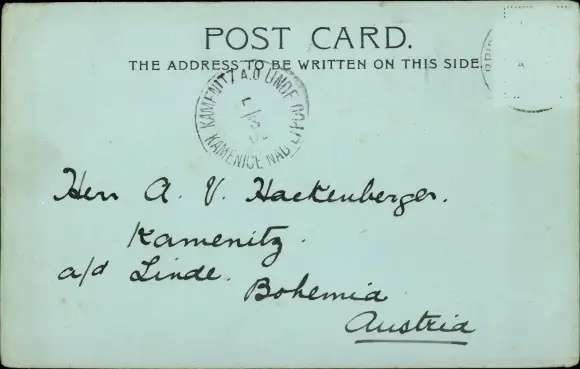 POST CARD.
THE ADDRESS TO BE WRITTEN ON THIS SIDE
KAMENITZ A.D. LINDE
KAMENICE NAD LIPOU
Herr A. V. Hackenberger.
Kamenitz.
a/d Linde.
Bohemia
Austria